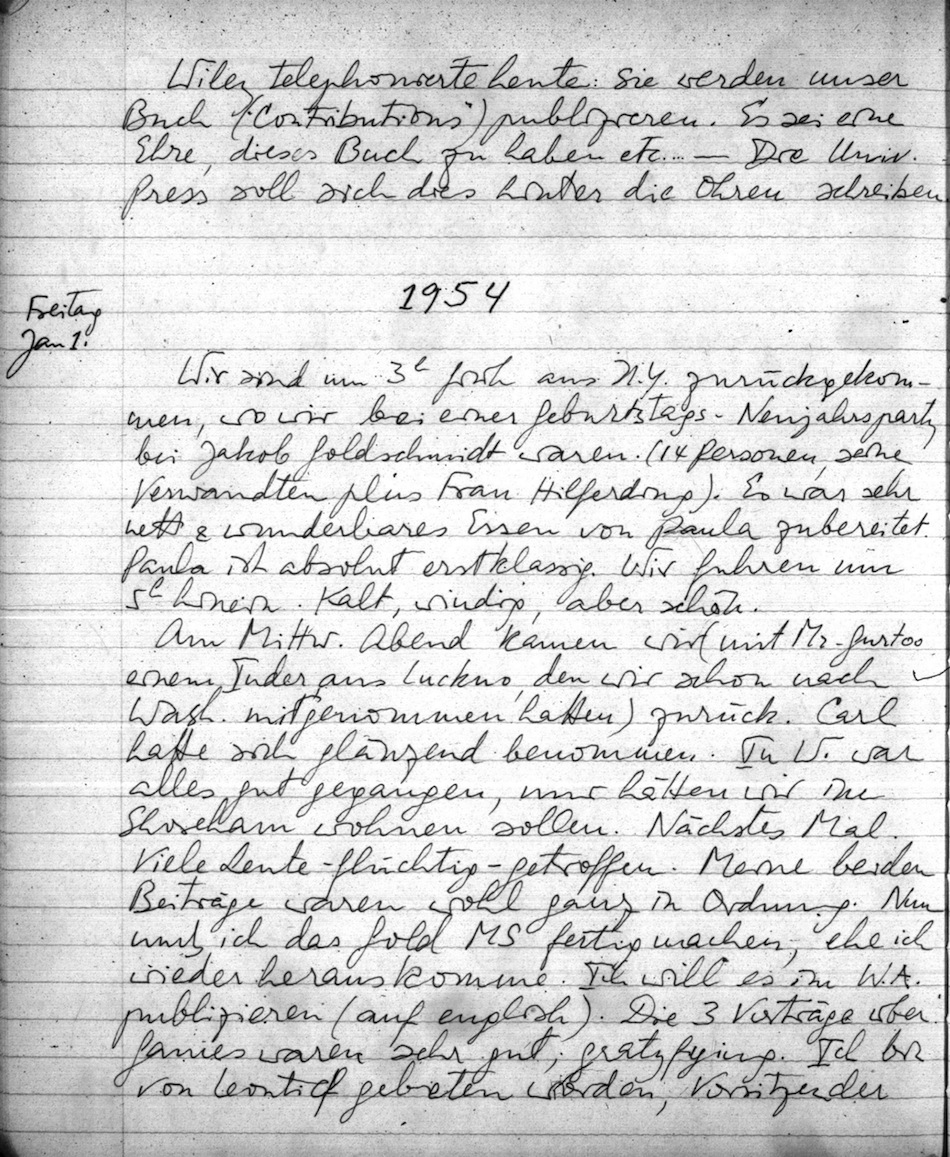 Wiley telephonierte heute: Sie werden unser
Buch ("Contributions") publizieren. Es sei eine
Ehre, dieses Buch zu haben etc... — Die Univ.
Press soll sich dies hinter die Ohren schreiben
1954
Freitag
Jan 1.
Wir sind um 3h früh aus N.Y. zurückgekom-
men, wo wir bei einer Geburtstags- Neujahrsparty
bei Jakob Goldschmidt waren. (14 Personen, seine
Verwandten plus Frau Hilferding). Es war sehr
nett & wunderbares Essen von Paula zubereitet.
Paula ist absolut erstklassig. Wir fuhren um
5h hinein. Kalt, windig, aber schön.
Am Mittw. Abend kamen wir (mit Mr. Gurtoo
einem Inder aus Luckno, den wir schon nach
Wash. mitgenommen hatten) zurück. Carl
hatte sich glänzend benommen. In W. war
alles gut gegangen, nur hätten wir im
Shoreham wohnen sollen. Nächstes Mal.
Viele Leute - flüchtig - getroffen. Meine beiden
Beiträge waren wohl ganz in Ordnung. Nun
muß ich das Gold MS fertig machen, ehe ich
wieder herauskomme. Ich will es im W.A.
publizieren (auf englisch). Die 3 Vorträge über
Games waren sehr gut; gratifying. Ich bin
von Leontief gebeten worden, Vorsitzender